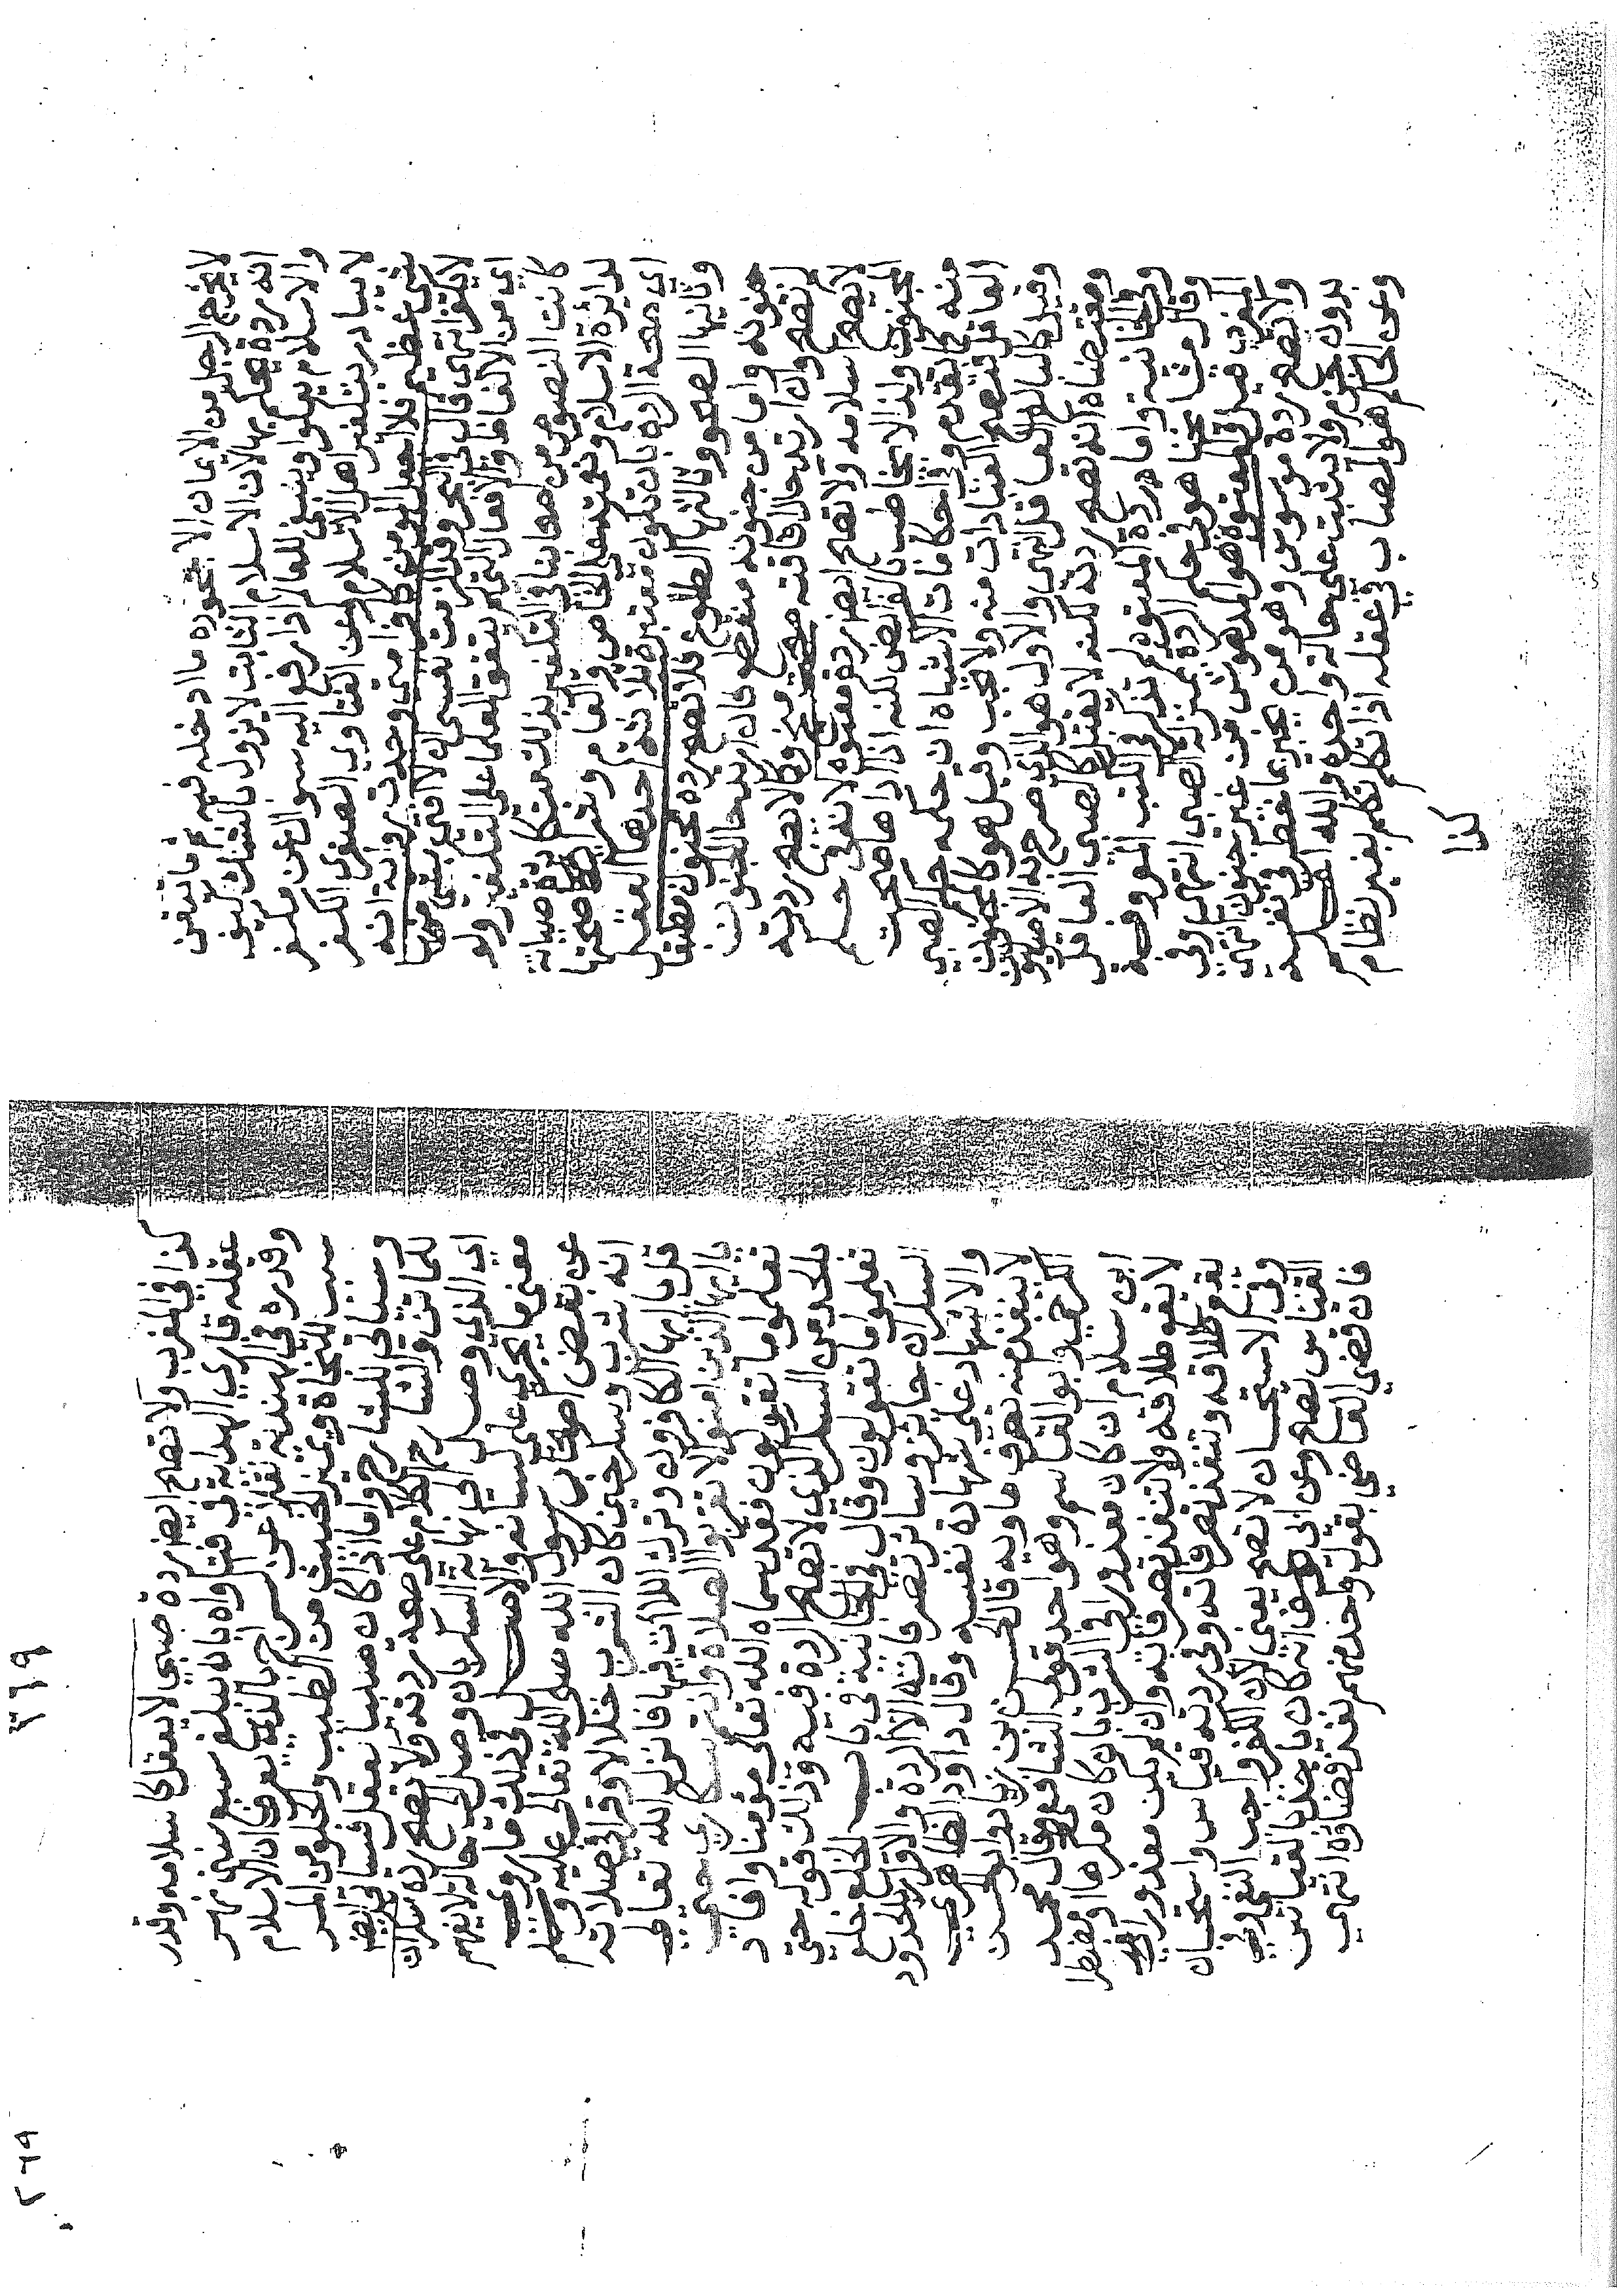 لا يخرج الرجل من الايمان الا جحوده ما ادخله فيه ثم ما تيقن
انه ردة يحكم بها لان الاسلام الثابت لا يزول بالشك كيف
والاسلام يعلو وينبغي للعالم اذا رفع اليه سؤال عن مكفر
لا يبادر بتكفير اهل الاسلام وعن الفتاوي الصغرى الكفر
شي عظيم فلا اجعل المومن كافرا متى وجدت رواية انه
لا يكفر انتهى قال في البحر وقد الزمت نفسي ان لا افتي بشي منها
اي من الالفاظ والافعال التي لم يتفق العلما على التكفير ولو
كانت النصوص من صحابنا في التكفير بذلك متكاثرة صيانة
لدايرة الاسلام الخاص والعام وشرايط صحتها
اي صحة الردة بان تكون معتبرة ثلاثة احدها العقل
وثانيها الصحو وثالثها الطوع فلا تصح ردة مجنون مطبقا
جنونه واما من جنونه متقطع فان ارتد حال الجنون
لم تصح وان ارتد حال افاقته صحت وكما لا تصح ردته
لا يصح اسلامه ولا تصح ايضا ردة معتوه لا
المجنون ولذا لا يخاطب بالفرائض لكنه اذا اداها صحت
منه كما تقدم وفي احكامات الاشباه ان حكمه حكم الصبي
العاقل فتصح العبادات منه ولا تجب وقيل هو كالمجنون
وقيل كالبالغ العاقل انتهى والاول هو الذي صرح به الاصوليون
ومقتضاه انه تصح ردته لكنه لا يقتل كالصبي العاقل
وفي الخانية واما ردة المعتوه لم تذكر في الكتب المعروفة
وقال مشايخنا هو في حكم الردة بمنزلة الصبي انتهى وفي
المغرب قيل المعتوه هو المدهوش من غير جنون انتهى
ولا تصح ردة موسوس وهو من يجري ما خطر في نفسه
بدون جزم ولا يثبت على حالة واحدة والله اعلم
وعن الحاكم هو المصاب في عقله اذا تكلم تكلم بغير نظام
كذا
كذا في المغرب ولا تصح ايضا ردة صبي لا يعقل كاسلامه وقدر
عقله قاري الهداية في فتاواه بان يبلغ سبع سنين نهر
وقدره في الهندية نقلا عن السراج بالذي يعرف ان الاسلام
سبب للنجاة ويميز الخبيث من الطيب والحلو من المر
وسياتي للشارح واما اذا كان صبيا يعقل فسياتي ايضا
للماتن والشارح الكلام على صحة ردته ولا تصح ردة سكران
اي الذي وصل الى نهاية السكر بان وصل الى حالة لا يفهم
معنى ما يجري على لسانه والاصل في ذلك ما روي
عن بعض اصحاب رسول الله صلى الله تعالى عليه وسلم
انه شرب وسكر حين كان الشرب حلالا وقرا في صلاته
قل يا ايها الكافرون وترك اللاآت فيها فانزل الله تعالى
يا ايها الذين امنوا لا تقربوا الصلاة وانتم سكارى حتى
تعلموا ما تقولون فقد سماه الله تعالى مؤمنا وافاد
فالسكر الذي لا تصح الردة فيه وذلك قوله حتى
تعلموا ما تقولون وقال في الخانية في باب الخلع خلع
السكران جائز وسائر تصرفاته الا الردة والاقرار بالحدود
والاشهاد على شهادة نفسه وقال داود الظاهري
لا ينفذ منه تصرف ما وبه قال الحسن بن زياد وابو الحسن
الكرخي وابو القاسم وهو احد قولي الشافعي وقال محمد
ابن سلام ان كان معذورا في الشرب بان كان مكرها او مضطرا
لا يقع طلاقه ولا تنفذ تصرفاته وان لم يكن معذورا
يقع طلاقه وتنفذ تصرفاته وفي ردته قياس واستحسان
وفي الاستحسان لا تصح يعني لان الكفر واجب النفي
القياس تصح وعن ابي يوسف انه كان ياخذ بالقياس
فان قضى القاضي بقول واحد منهم نفذ قضاؤه انتهى
٣٦٩
٢٦٩